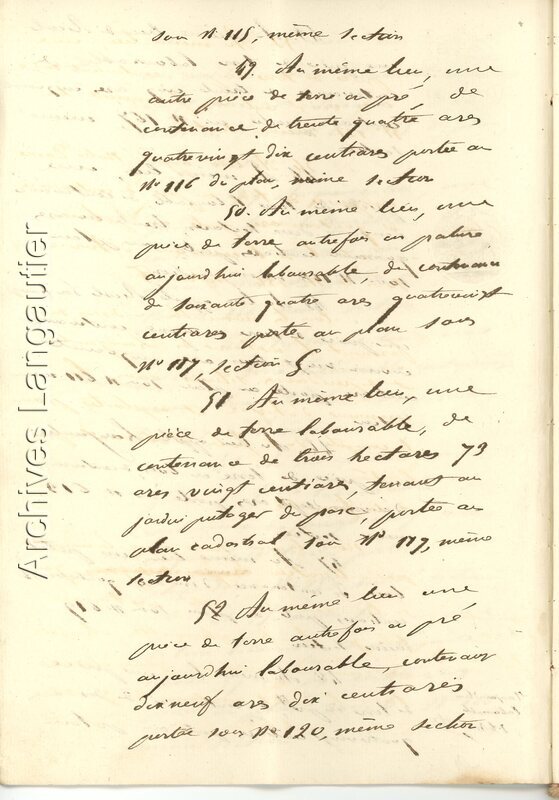 sous n° 115, même section
49. Au même lieu, une
autre pièce de terre en pré, de
contenance de trente quatre ares
quatrevingt dix centiares portée au
N° 116 du plan, même section
50. Au même lieu, une
pièce de terre autrefois en pature
aujourdhui labourable, de contenance
de soixante quatre ares quatrevingt
centiares porté au plan sous
N° 117, section G
51 Au même lieu, une
pièce de terre labourable, de
contenance de trois hectares 73
ares vingt centiares, tenant au
jardin potager du parc, portée au
plan cadastral sous N° 119, même
section
52 Au même lieu une
pièce de terre autrefois en pré
aujourdhui labourable, contenant
dix neuf ares dix centiares
portée sous N° 120, même section
Archives Langautier